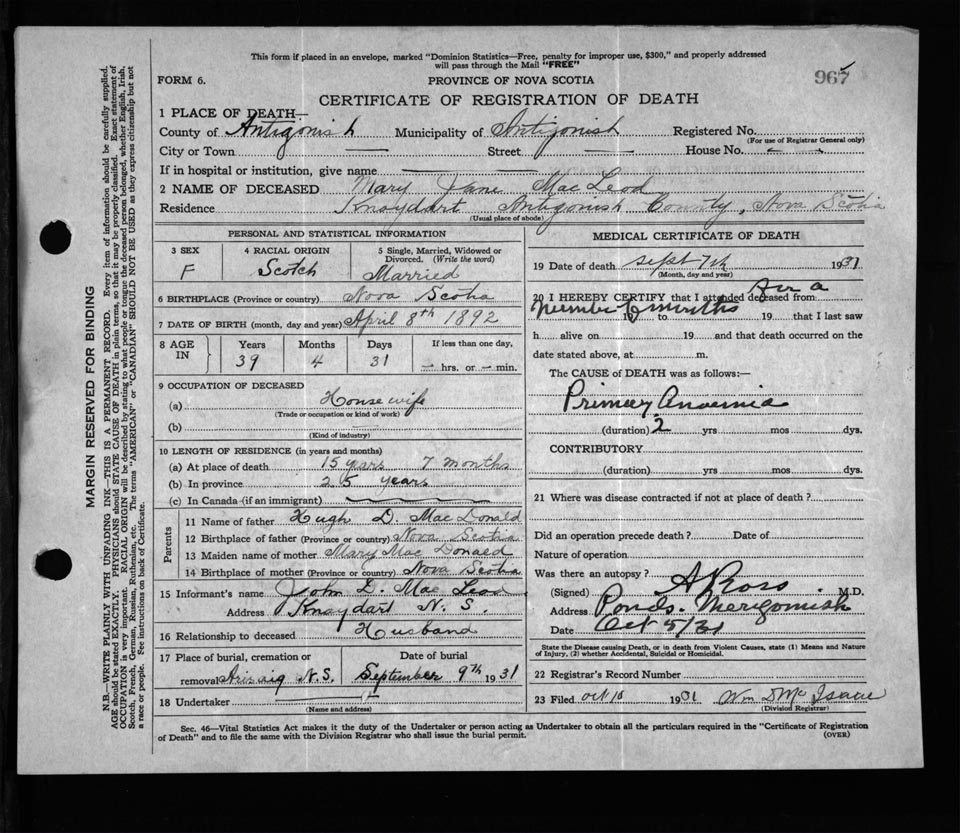 This form if placed in an envelope, marked "Dominion Statistics—Free, penalty for improper use, $300," and properly addressed
will pass through the Mail "FREE"
967
FORM 6.
PROVINCE OF NOVA SCOTIA
CERTIFICATE OF REGISTRATION OF DEATH
1 PLACE OF DEATH—
County of Antigonish Municipality of Antigonish Registered No.
(For use of Registrar General only)
City or Town — Street — House No. —
If in hospital or institution, give name —
2 NAME OF DECEASED Mary Jane MacLeod
Residence Knoydart Antigonish County, Nova Scotia
(Usual place of abode)
PERSONAL AND STATISTICAL INFORMATION
3 SEX F
4 RACIAL ORIGIN Scotch
5 Single, Married, Widowed or Divorced. (Write the word) Married
6 BIRTHPLACE (Province or country) Nova Scotia
7 DATE OF BIRTH (month, day and year) April 8th 1892
8 AGE IN
Years Months Days If less than one day,
39 4 31 — hrs. or — min.
9 OCCUPATION OF DECEASED
(a) Housewife
(Trade or occupation or kind of work)
(b)
(Kind of industry)
10 LENGTH OF RESIDENCE (in years and months)
(a) At place of death 15 years 7 months
(b) In province 25 years
(c) In Canada (if an immigrant) —
Parents
11 Name of father Hugh D. MacDonald
12 Birthplace of father (Province or country) Nova Scotia
13 Maiden name of mother Mary MacDonald
14 Birthplace of mother (Province or country) Nova Scotia
15 Informant's name John D. MacLeod
Address Knoydart N.S.
16 Relationship to deceased Husband
17 Place of burial, cremation or removal Arisaig N.S.
Date of burial September 9th 1931
18 Undertaker
(Name and address)
MEDICAL CERTIFICATE OF DEATH
19 Date of death Sept 7th 1931
(Month, day and year)
20 I HEREBY CERTIFY that I attended deceased from for a
number of months 19 to 19 that I last saw
h alive on 19 and that death occurred on the
date stated above, at m.
The CAUSE of DEATH was as follows:—
Primary Anaemia
(duration) 2 yrs mos dys.
CONTRIBUTORY
(duration) yrs mos dys.
21 Where was disease contracted if not at place of death?
Did an operation precede death? Date of
Nature of operation
Was there an autopsy?
(Signed) A Ross M.D.
Address Ponds. Merigomish
Date Oct 5/31
State the Disease causing Death, or in death from Violent Causes, state (1) Means and Nature
of Injury, (2) whether Accidental, Suicidal or Homicidal.
22 Registrar's Record Number
23 Filed Oct 10 1931 Wm D McIsaac
(Division Registrar)
Sec. 46—Vital Statistics Act makes it the duty of the Undertaker or person acting as Undertaker to obtain all the particulars required in the "Certificate of Registration
of Death" and to file the same with the Division Registrar who shall issue the burial permit.
(OVER)
MARGIN RESERVED FOR BINDING
N.B.—WRITE PLAINLY WITH UNFADING INK—THIS IS A PERMANENT RECORD. Every item of information should be carefully supplied.
AGE should be stated EXACTLY. PHYSICIANS should STATE CAUSE OF DEATH in plain terms, so that it may be properly classified. Exact statement of
OCCUPATION is very important. RACIAL ORIGIN will be described by stating to what people or tongue the deceased person belonged, whether English, Irish,
Scotch, French, German, Russian, Ruthenian, etc. The terms "AMERICAN" or "CANADIAN" SHOULD NOT BE USED as they express citizenship but not
a race or people. See instructions on back of Certificate.